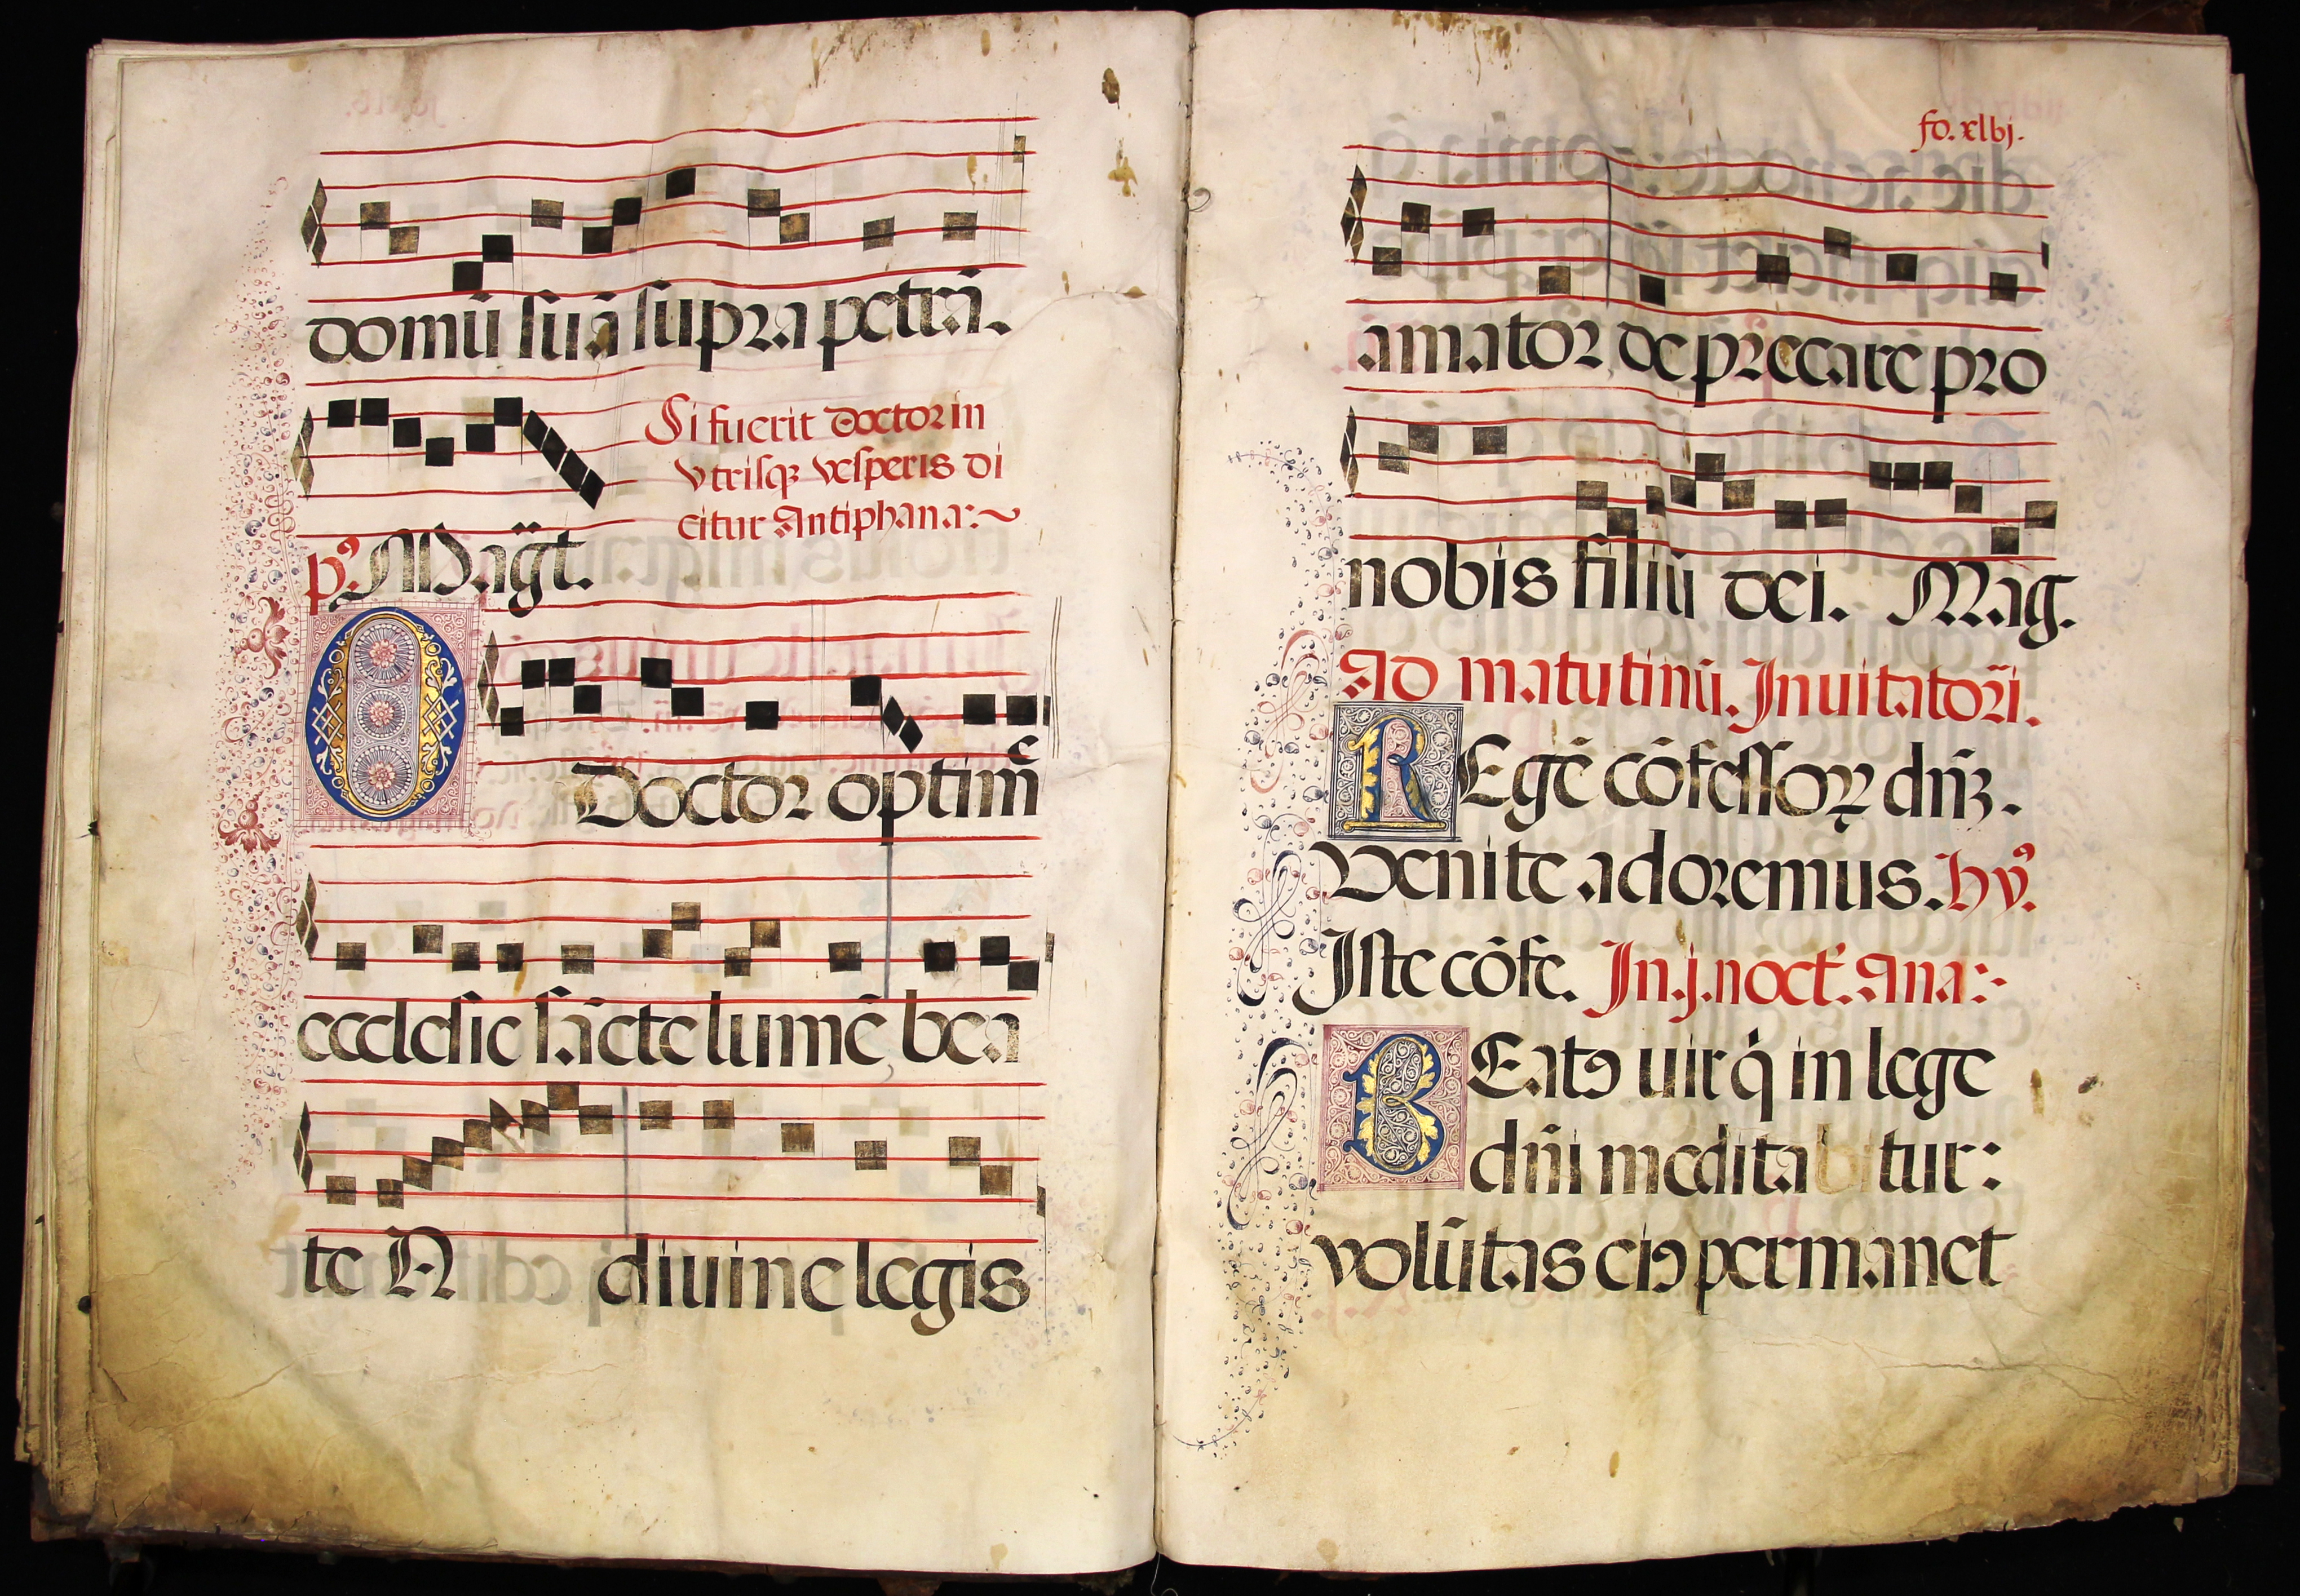 domū suā supra petrā.
Si fuerit doctor in
vtrisqꝫ vesperis di
citur Antiphana:~
pꝰ Magt̄.
O Doctor optimē
ecclesie sācte lumē bea
te N diuine legis
fo. xlbj.
amator deprecare pro
nobis filiū dei. Mag.
Ad matutinū. Inuitatorī.
REgē cōfessoꝝ dn̄ꝫ.
Venite adoremus. hyꝰ.
Iste cōfe. In.j.noct̄. Ana:-
BEatꝰ uir q̇ in lege
dn̄i meditabitur:
volūtas eiꝰ permanet